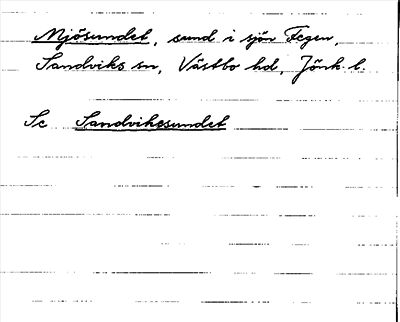 Mjösundet, sund i sjön Fegen,
Sandviks sn, Västbo hd, Jönk. l.
Se Sandvikssundet